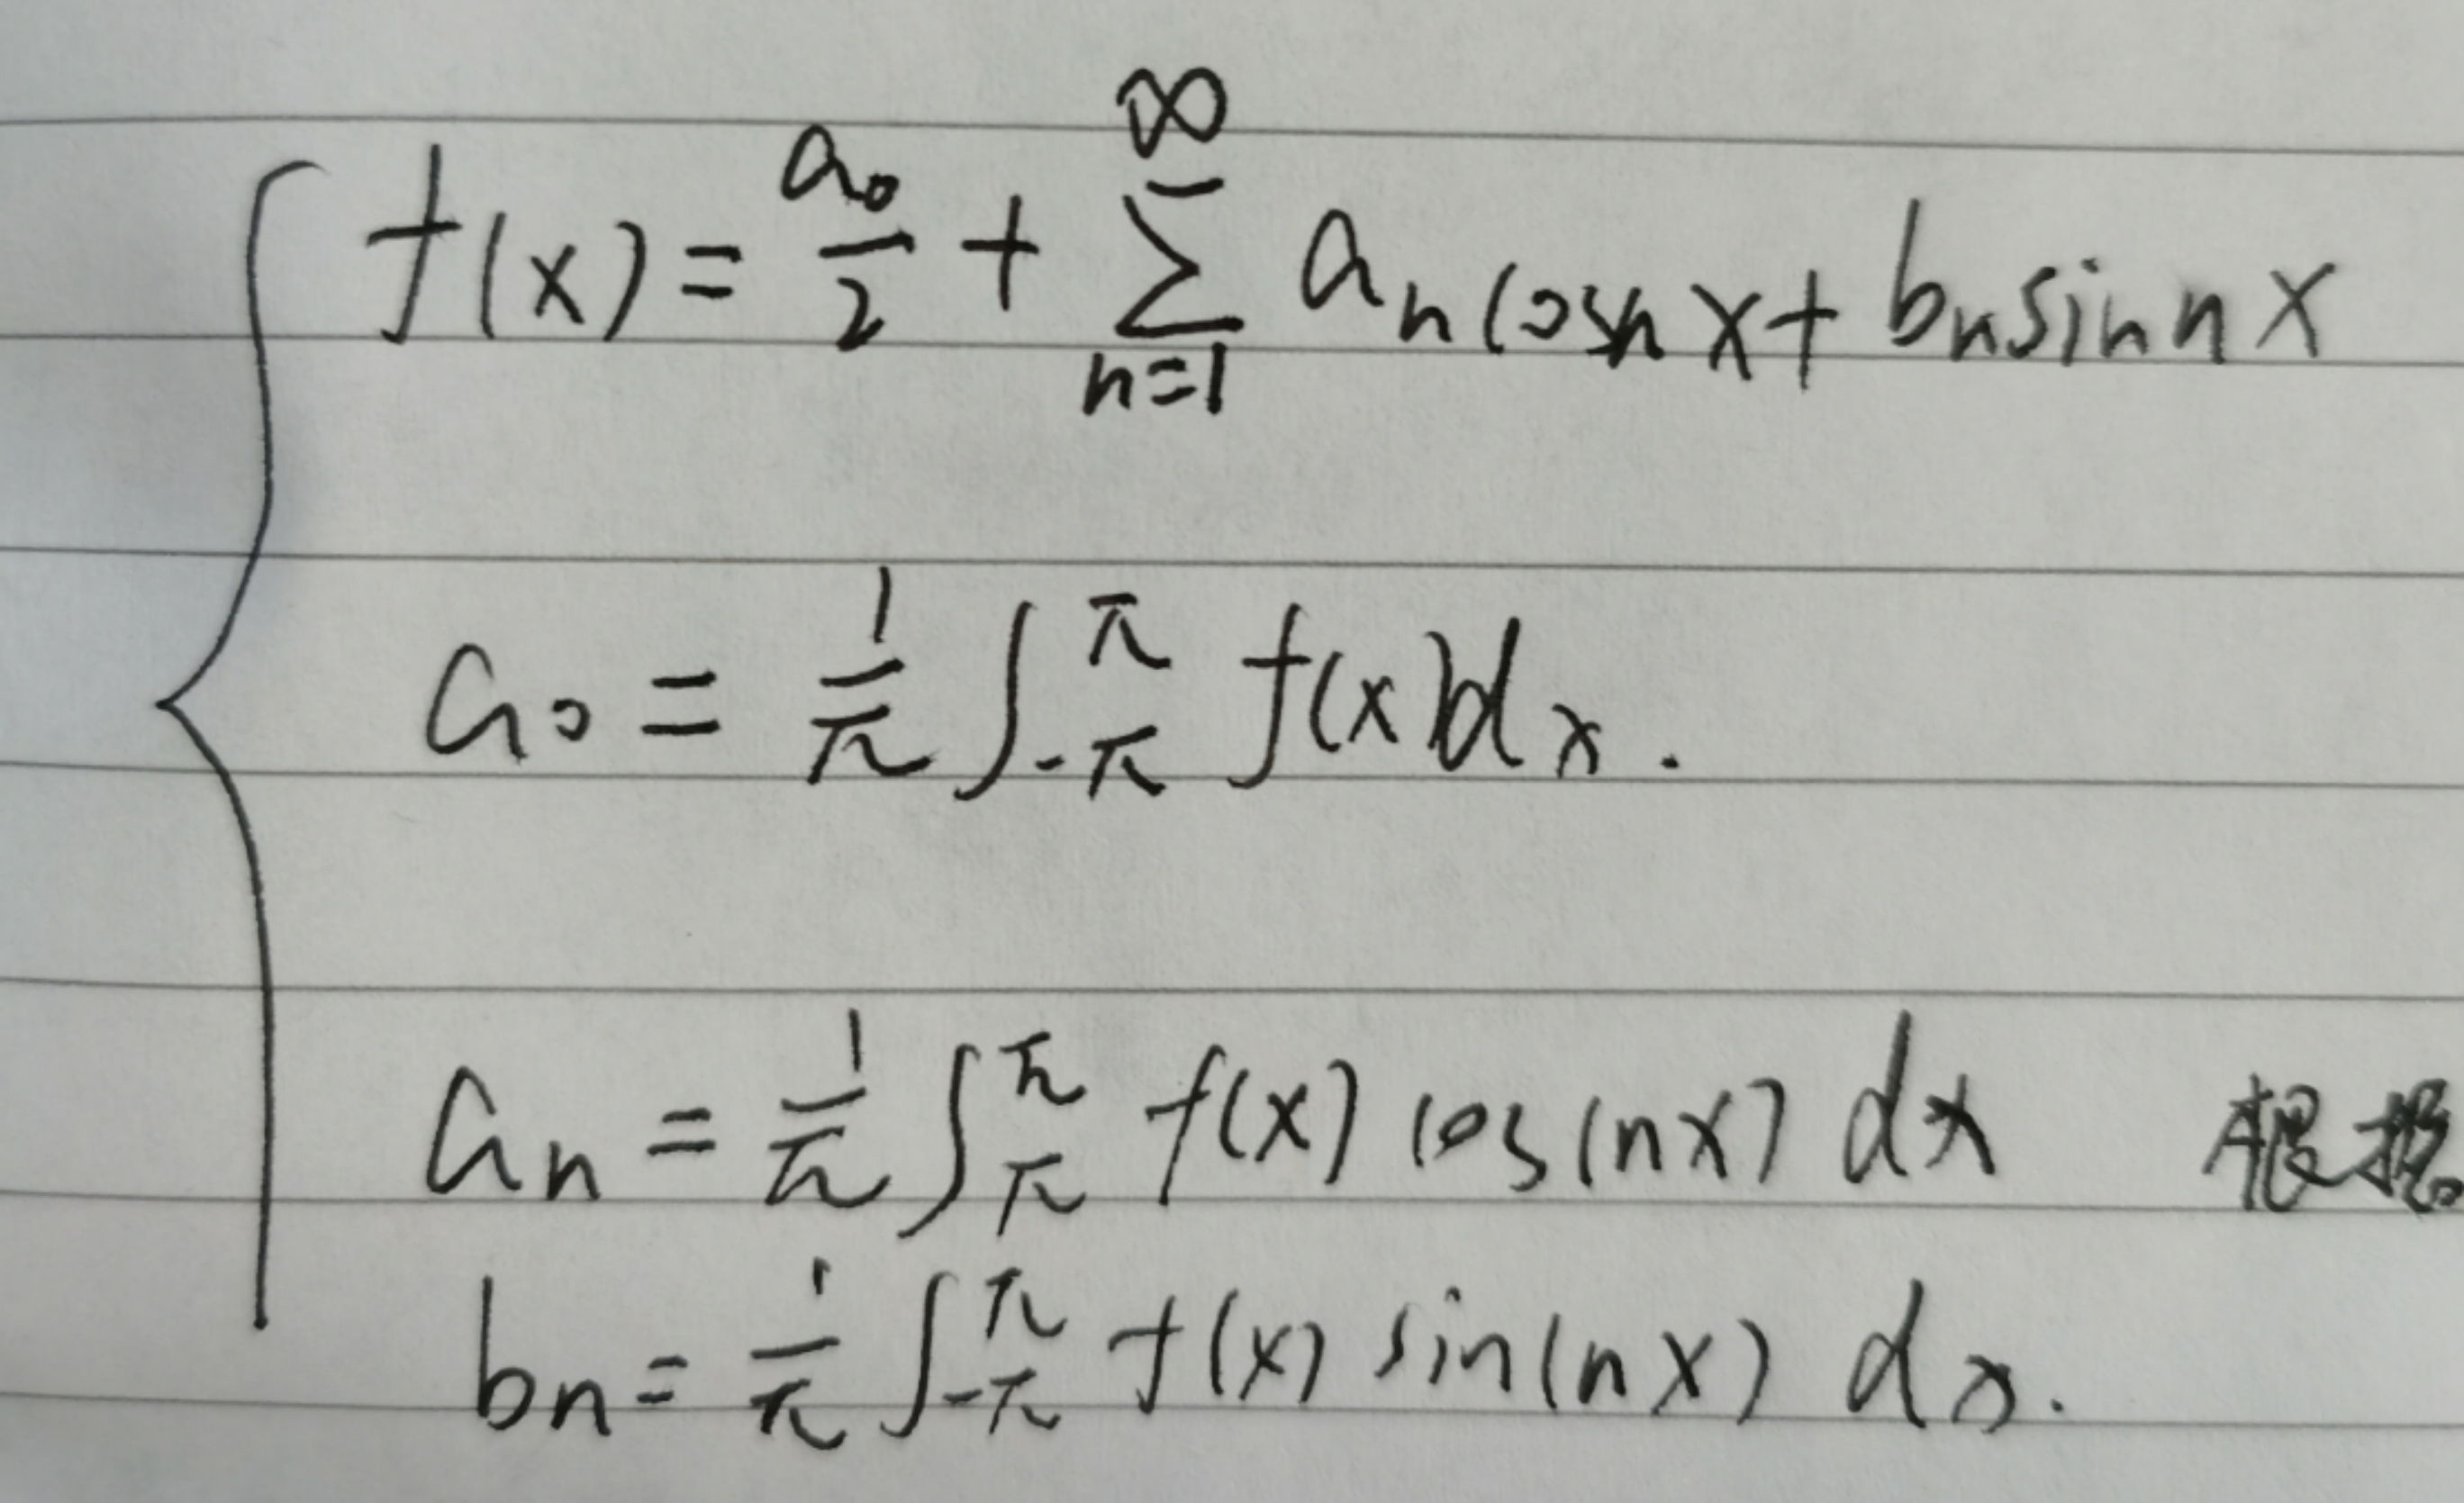 f(x) = a₀/2 + ∑_{n=1}^{∞} aₙ cosnx + bₙ sinnx
a₀ = 1/π ∫_{-π}^{π} f(x)dx.
aₙ = 1/π ∫_{π}^{π} f(x) cos(nx) dx 根据
bₙ = 1/π ∫_{-π}^{π} f(x) sin(nx) dx.